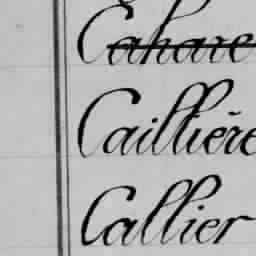 Cahare
Caillière
Callier